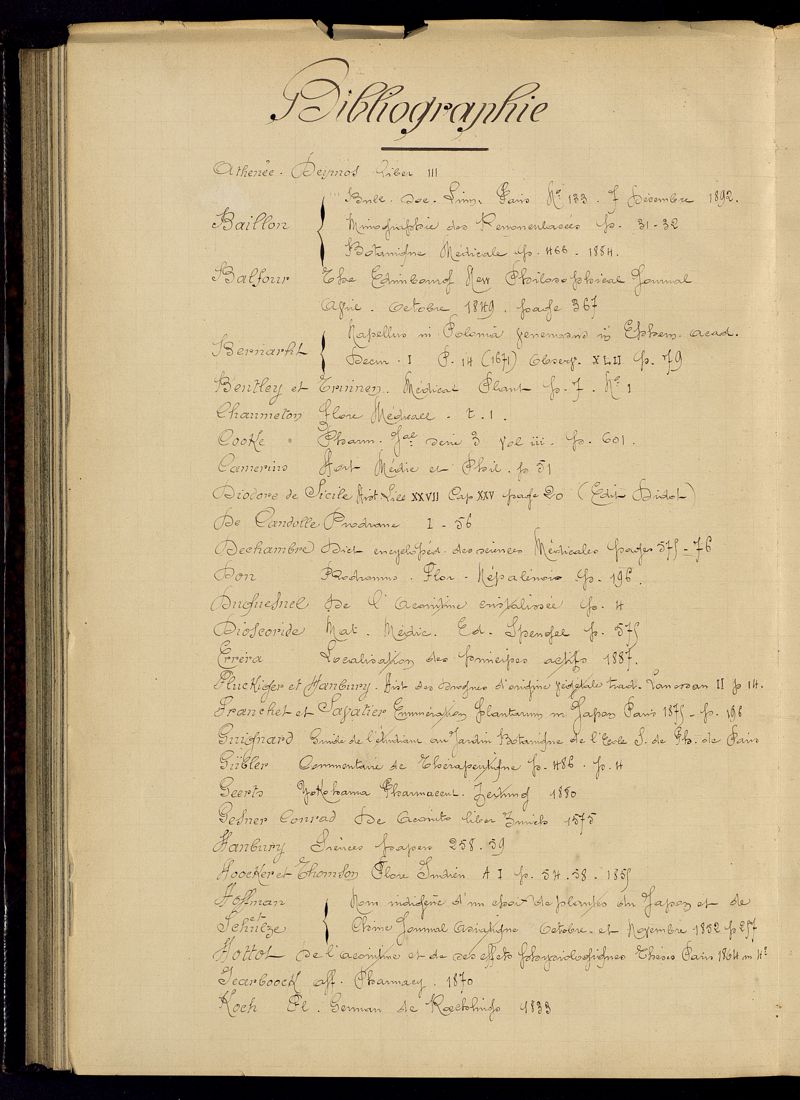 Bibliographie
Athenée. Deipnos liber III
Bull. Soc. Linn. Paris No 133. 7 Décembre 1892.
Baillon Monographie des Renonculacées p. 31-32
Botanique Médicale p. 466. 1884.
Balfour The Edinbourg New Philosophical Journal
Avril. Octobre 1849. page 367
Napellus in Polonia venenosus in Ephem. acad.
Bernarht Decur. I P. 14 (1671) Observ. XLII p. 79
Bentley et Trimen. Médical Plant p. 7. No 1
Chaumeton Flore Médicale. t. 1.
Cooke Pharm. Jal serie 3 vol iii. p. 601.
Camerius Hort Médic et Phil. p 51
Diodore de Sicile Hist XXVII Cap XXV page 20 (Edit Didot)
De Candolle Prodrome I - 56
Dechambre Dict encyclopéd. des sciences Médicales pages 575-76
Don Prodromus. Flor. Népalensis p. 196.
Duquesnel De l'Aconitine cristallisée p. 4
Dioscoride Mat. Médic. Ed. Sprengel p. 575
Errera Localisation des principes actifs 1887.
Fluckiger et Hanbury. Hist des drogues d'origine végétale trad. Lanessan II p 14.
Franchet et Savatier Enumération plantarum in Japon Paris 1875 - p. 198
Guignard Guide de l'étudiant au Jardin Botanique de l'Ecole S. de Ph. de Paris
Gübler Commentaire de Thérapeutique p. 486. p. 4
Geerts Yokohama Pharmaceut. Zeitung 1880
Gesner Conrad De Aconito liber Zurich 1575
Hanbury Sciences papers 258.59
Hoocker et Thomson Flore Indien A I p. 54.58. 1855
Hoffman Nom indigène d'un de plantes du Japon et de
et
Schultze Chine Journal Asiatique Octobre et Novembre 1852 p 257
Hottot De l'aconitine et de ses effets physiologiques Thèses Paris 1864 in 4º
Jearboock off. Pharmacy. 1870
Koch Fl. German de 1833